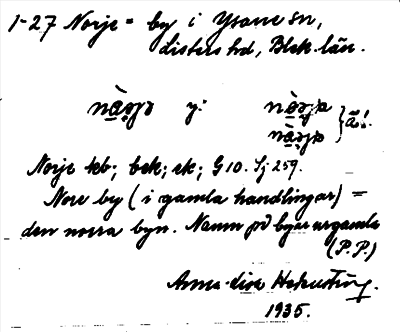 1-27 Norje = by i Ysane sn,
Listers hd, Blek. län.
y.
Norje kb; bek; ek; G 10. Sj 259.
Nore by (i gamla handlingar) =
den norra byn. Namn på byar urgamla
(P.P.)
Anna-Lisa
1935.